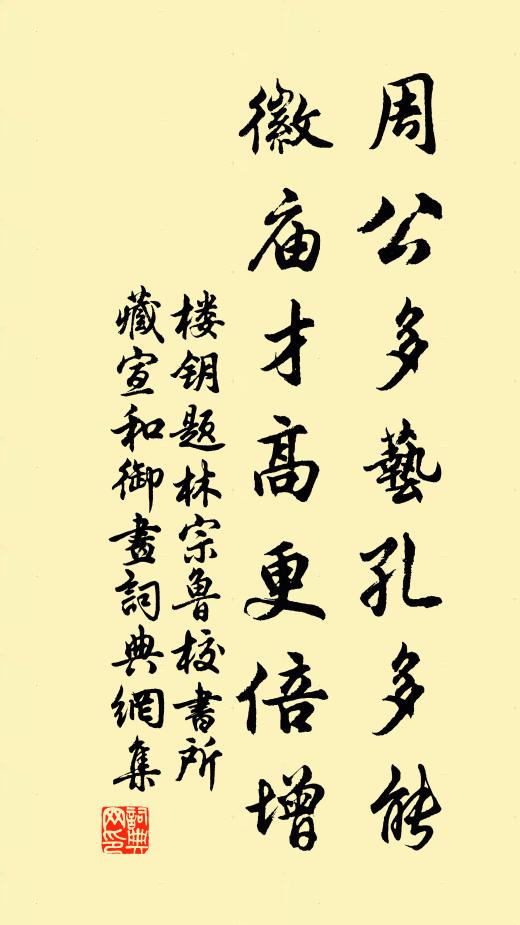 周公多藝孔多能
徽庙才高更倍增
楼钥题林宗鲁校書所
藏宣和御畫詞典網集
詞典
网印